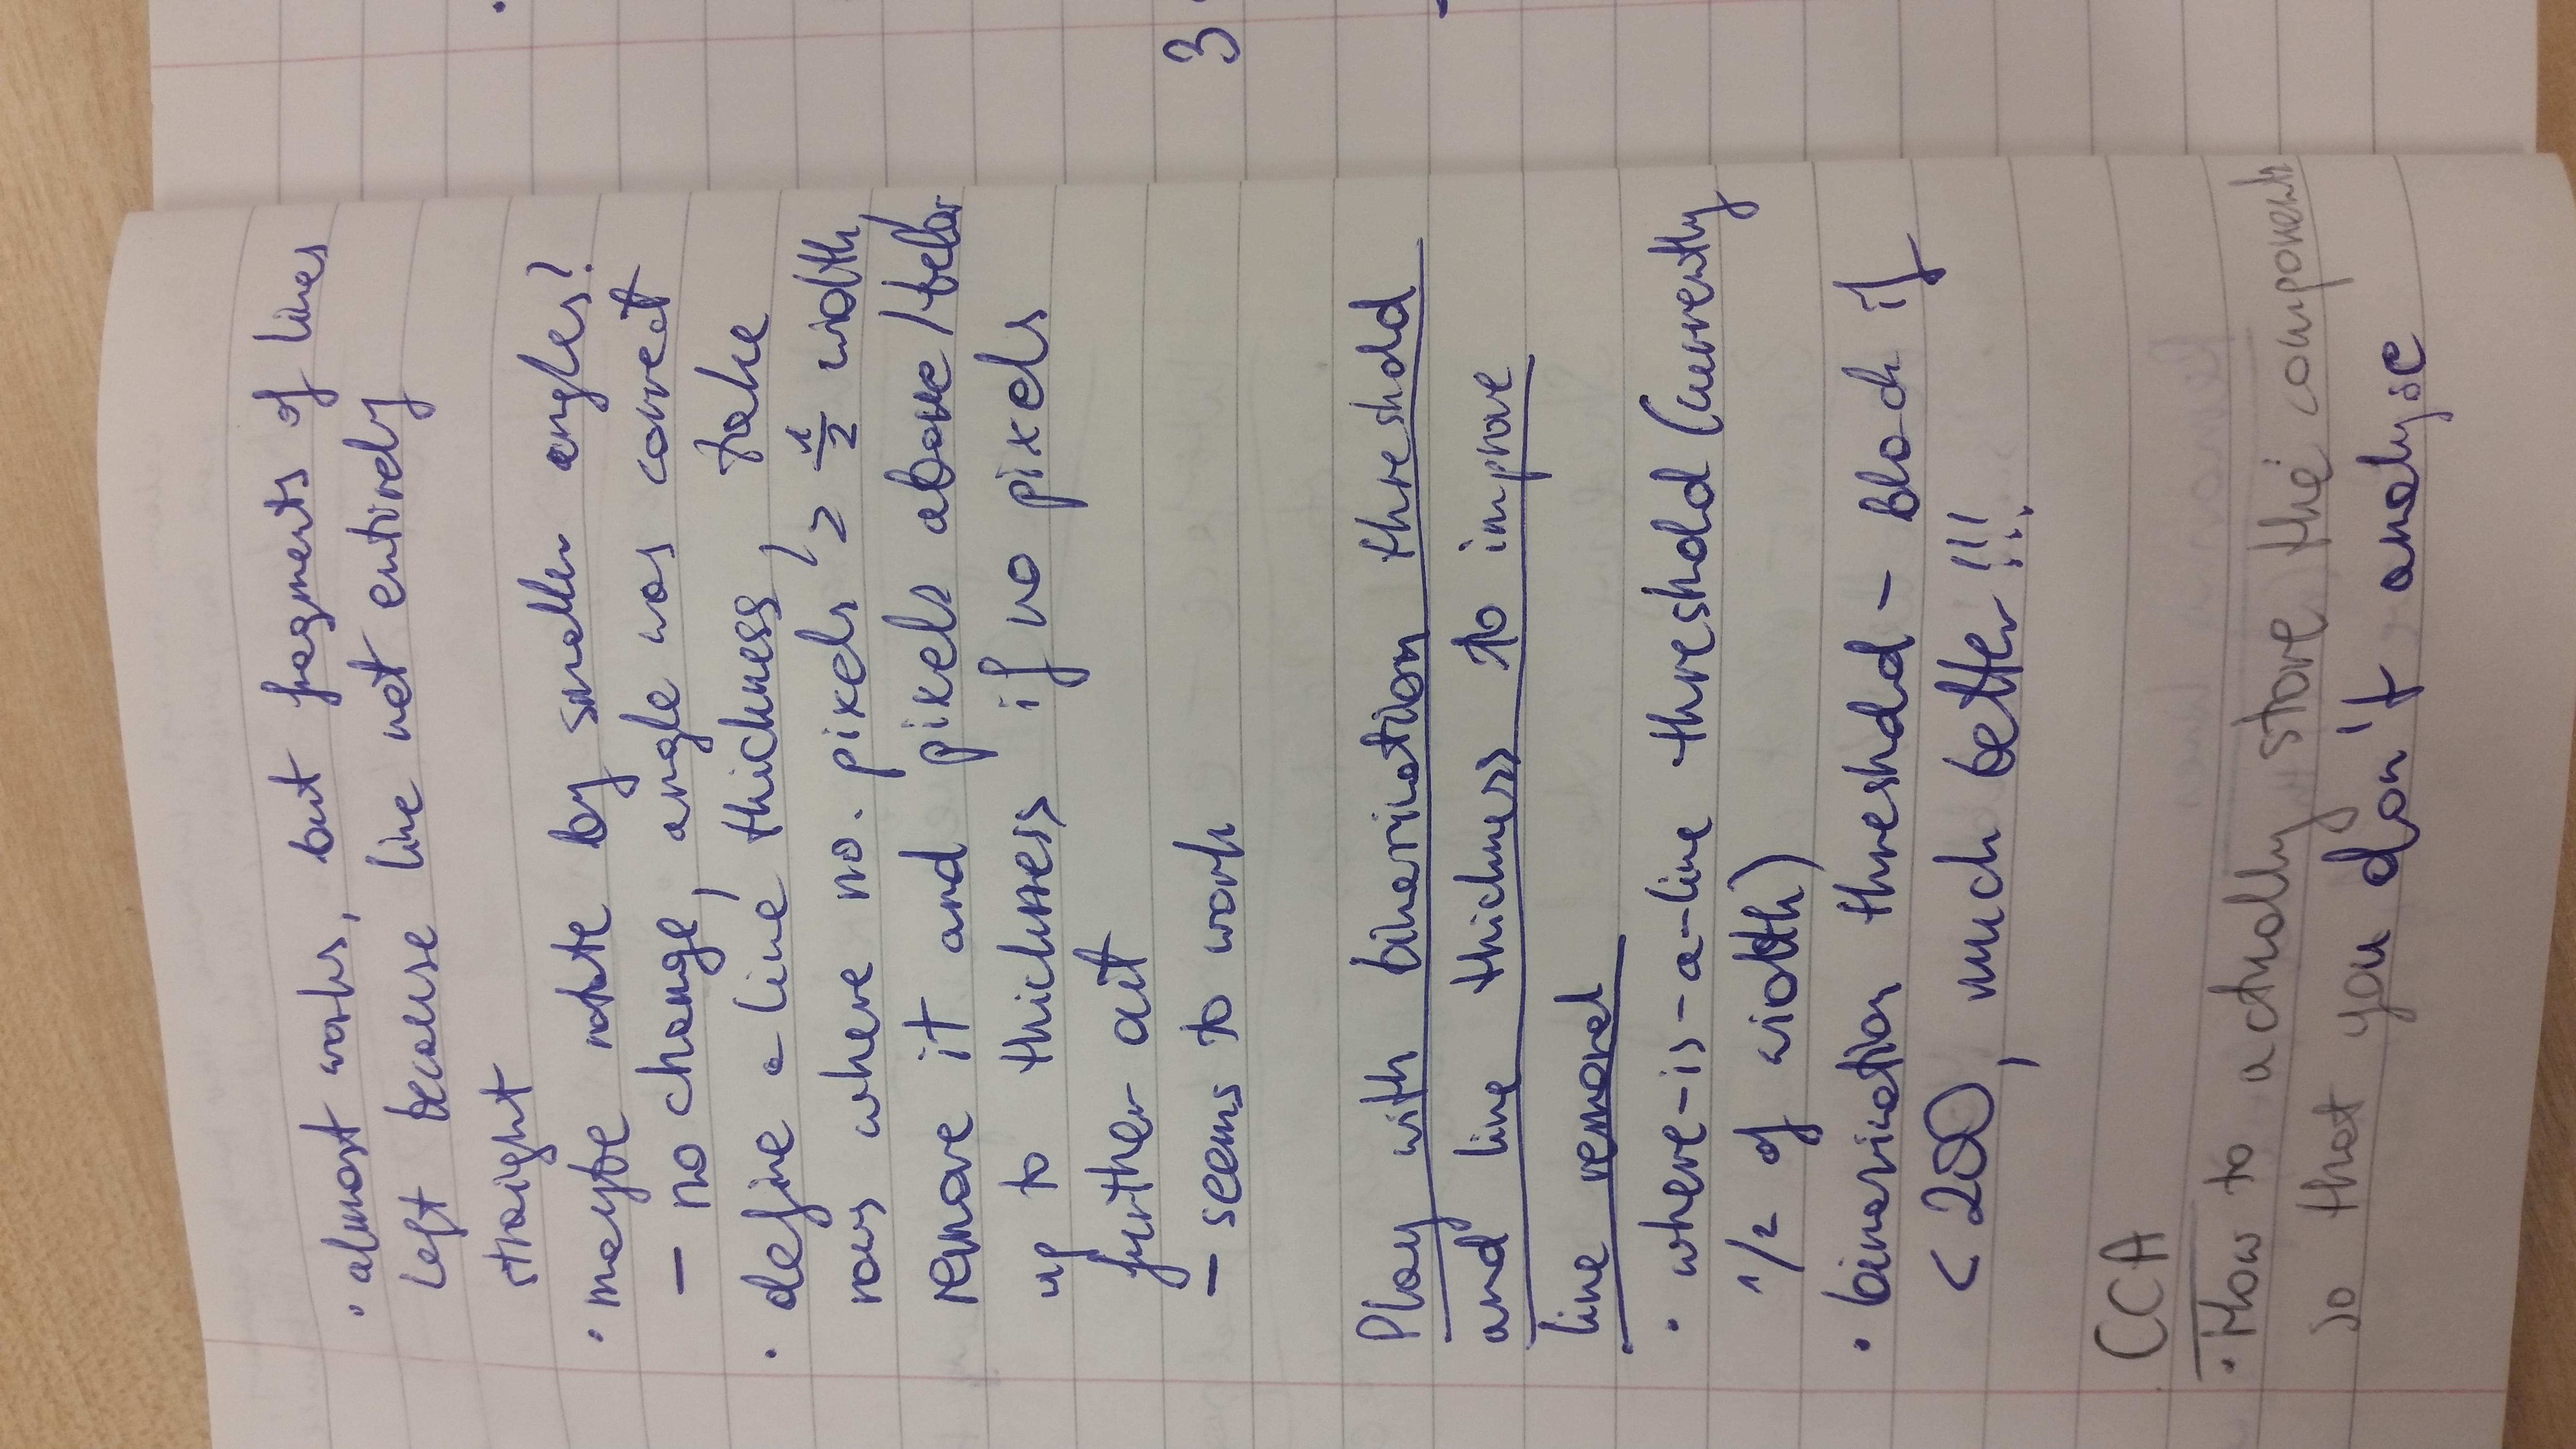 • almost works, but fragments of lines
left because line not entirely
straight
• maybe rotate by smaller angles?
– no change, angle was correct
• define a line thickness, take
rows where no. pixels > 1/2 width,
remove it and pixels above/below
up to thickness if no pixels
further out
– seems to work
Play with binarization threshold
and line thickness to improve
line removal
• where-is-a-line threshold (currently
1/2 of width)
• binarization threshold – black if
< 200, much better!!!
CCA
• How to actually store the components
so that you don't analyse
3